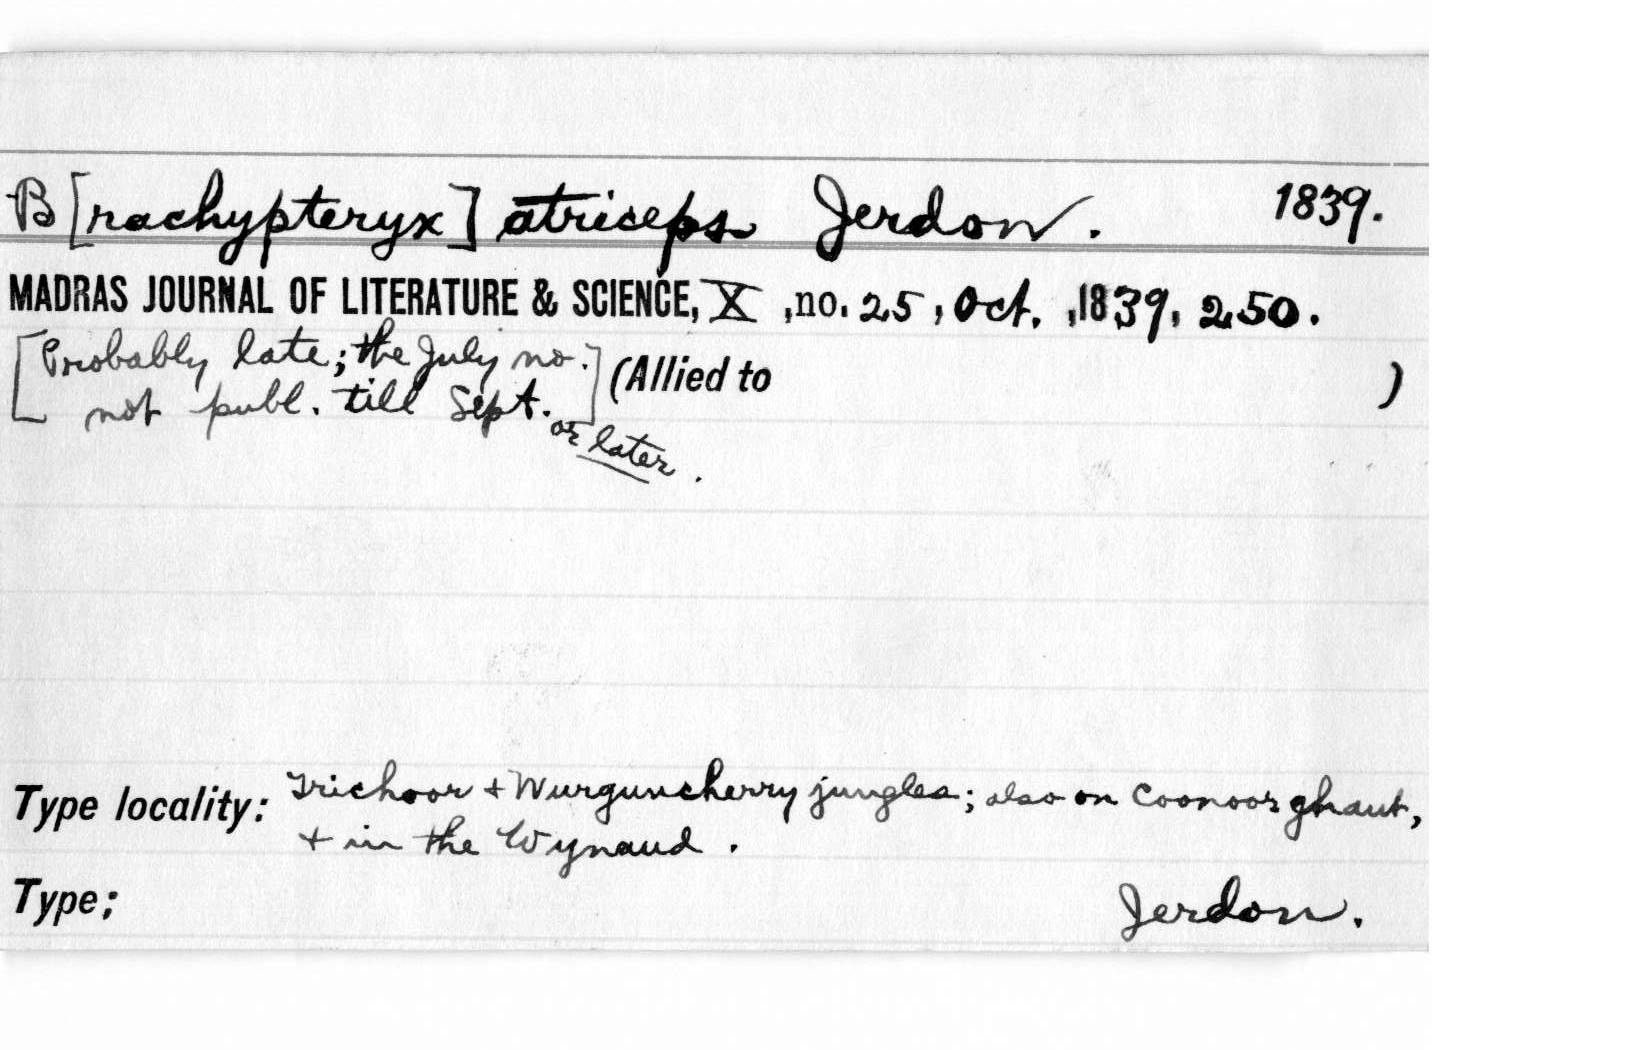 B[rachypteryx] atriceps Jerdon. 1839.
MADRAS JOURNAL OF LITERATURE & SCIENCE, X, no. 25, Oct., 1839, 250.
[Probably late; the July no.
not publ. till Sept.] (Allied to )
or later.
Type locality: Trichoor + Wurguncherry jungles; also on Coonoor ghaut,
+ in the Wynaud.
Type; Jerdon.